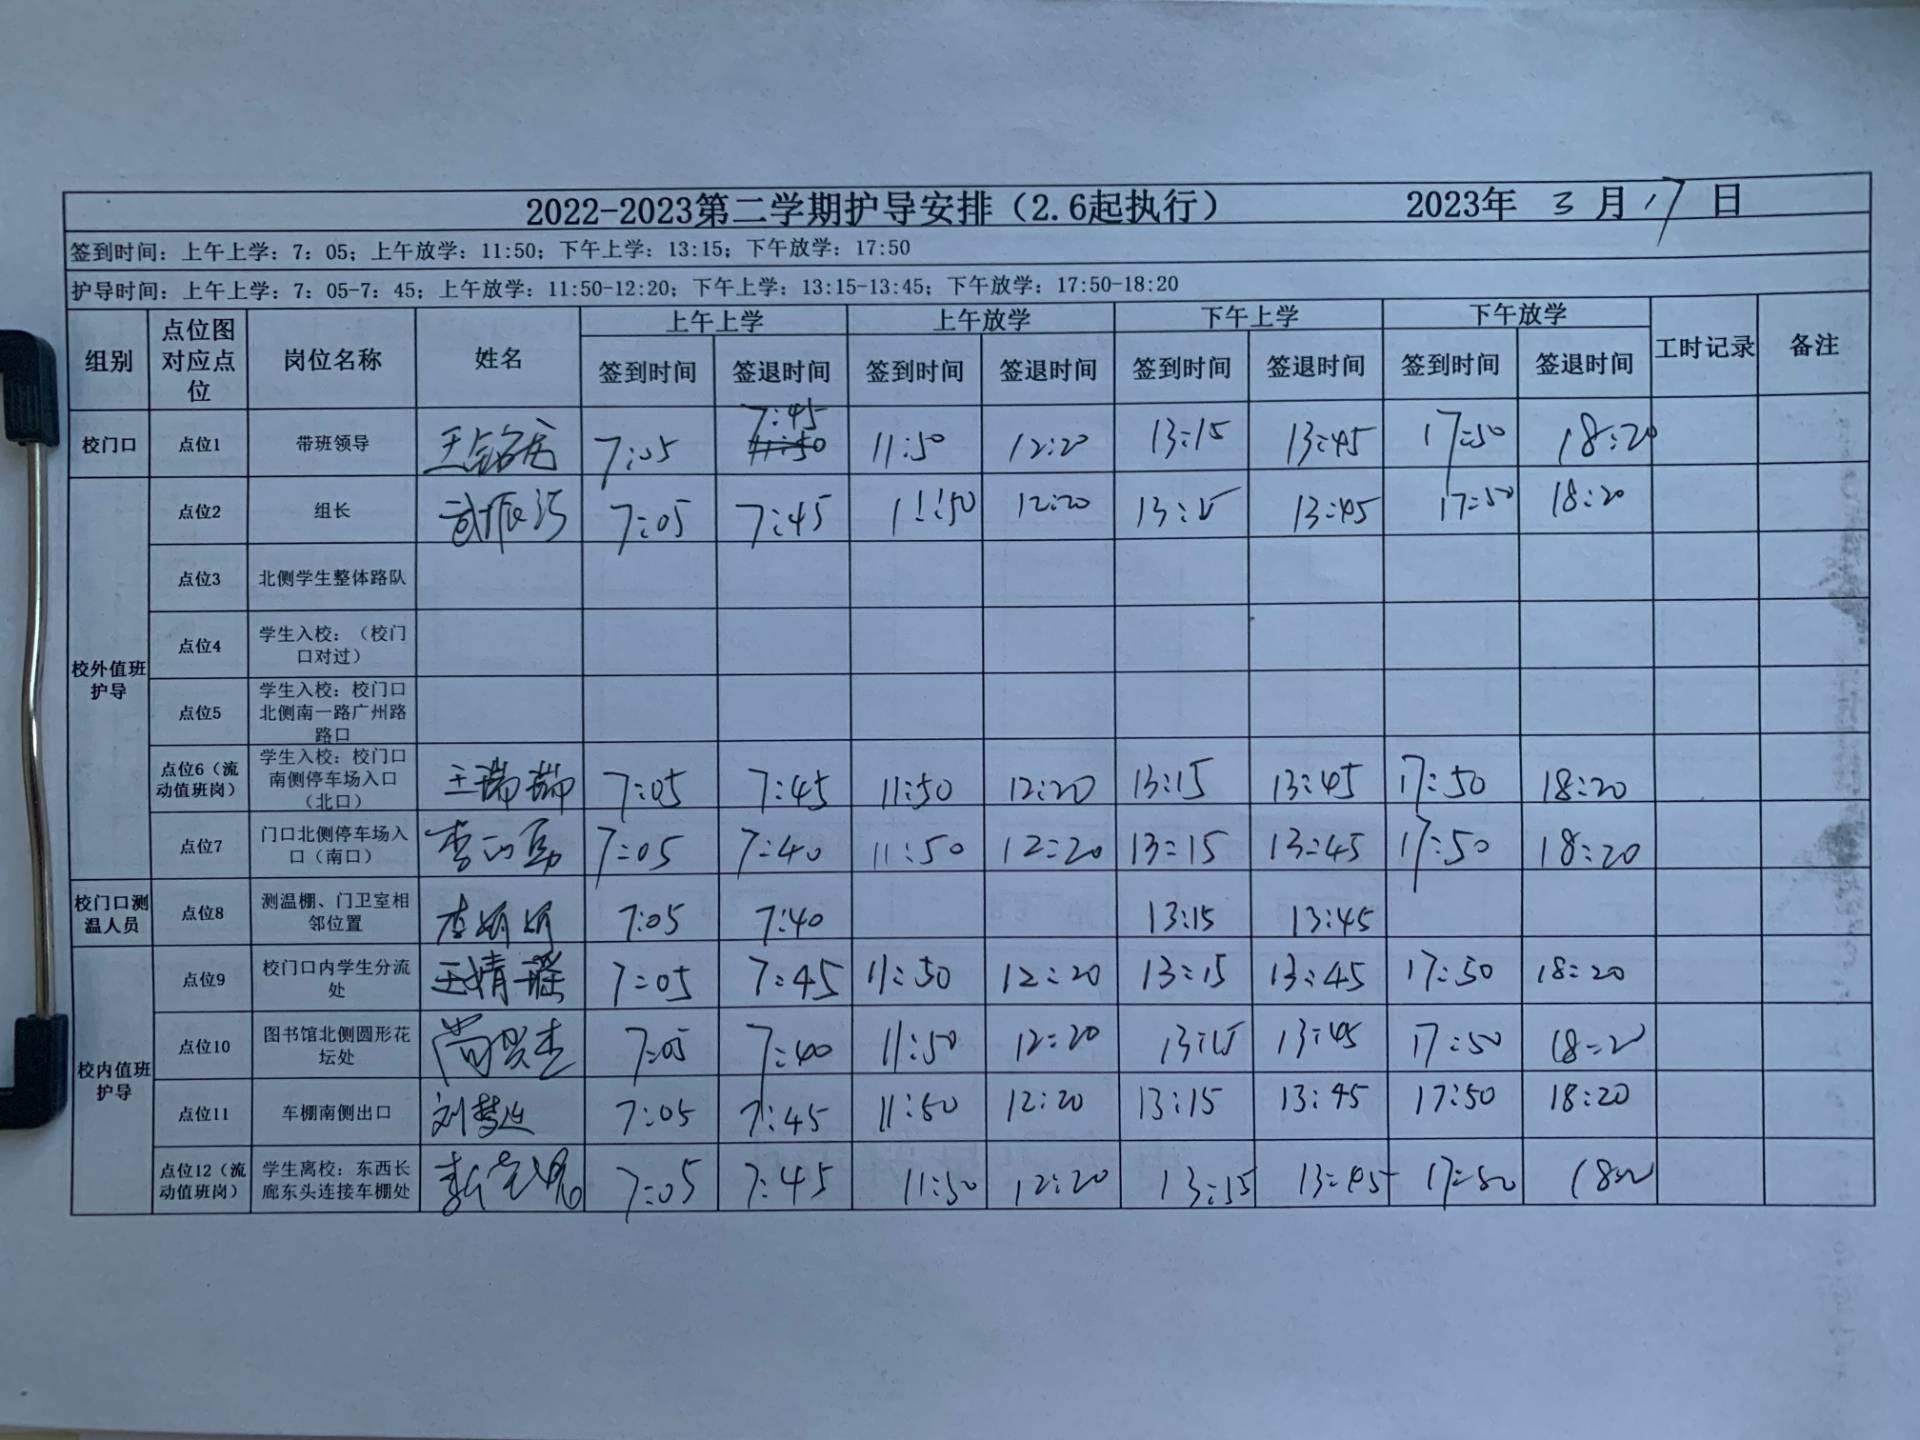 2022-2023第二学期护导安排（2.6起执行） 2023年 3 月 17 日
签到时间：上午上学：7：05；上午放学：11:50；下午上学：13:15；下午放学：17:50
护导时间：上午上学：7：05-7：45；上午放学：11:50-12:20；下午上学：13:15-13:45；下午放学：17:50-18:20
组别 点位图对应点位 岗位名称 姓名 上午上学 上午放学 下午上学 下午放学 工时记录 备注
签到时间 签退时间 签到时间 签退时间 签到时间 签退时间 签到时间 签退时间
校门口 点位1 带班领导 7:05 7:45 11:50 12:20 13:15 13:45 17:50 18:20
校外值班护导
点位2 组长 7:05 7:45 11:50 12:20 13:15 13:45 17:50 18:20
点位3 北侧学生整体路队
点位4 学生入校：（校门口对过）
点位5 学生入校：校门口北侧南一路广州路路口
点位6（流动值班岗） 学生入校：校门口南侧停车场入口（北口） 王瑞瑞 7:05 7:45 11:50 12:20 13:15 13:45 17:50 18:20
点位7 门口北侧停车场入口（南口） 7:05 7:40 11:50 12:20 13:15 13:45 17:50 18:20
校门口测温人员 点位8 测温棚、门卫室相邻位置 李娟娟 7:05 7:40 13:15 13:45
校内值班护导
点位9 校门口内学生分流处 王婧瑶 7:05 7:45 11:50 12:20 13:15 13:45 17:50 18:20
点位10 图书馆北侧圆形花坛处 7:05 7:40 11:50 12:20 13:15 13:45 17:50 18:20
点位11 车棚南侧出口 7:05 7:45 11:50 12:20 13:15 13:45 17:50 18:20
点位12（流动值班岗） 学生离校：东西长廊东头连接车棚处 7:05 7:45 11:50 12:20 13:15 13:45 17:50 18:20